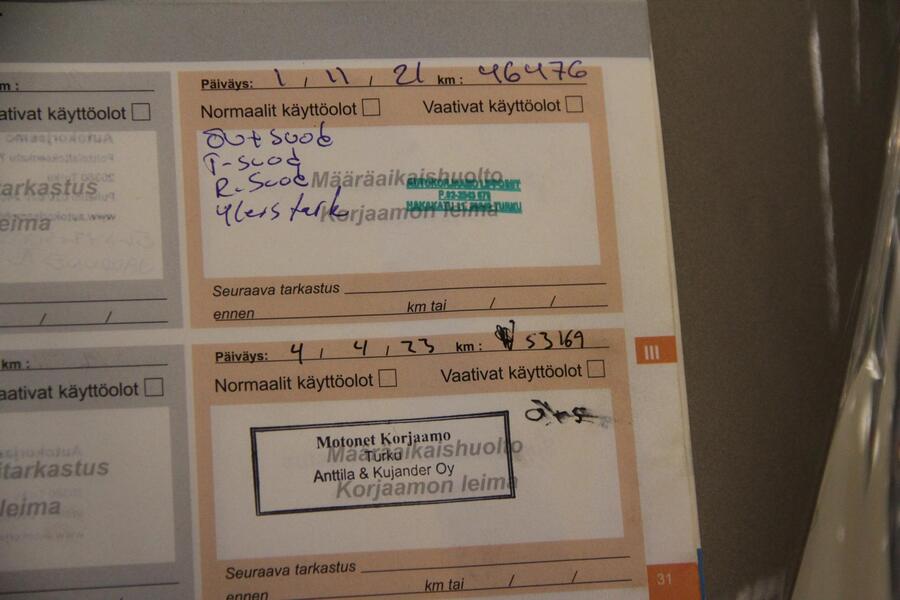 Päiväys: 1 / 11 / 21 km: 46476
ativat käyttöolot
Normaalit käyttöolot Vaativat käyttöolot
öv+suod
T-suod
R-suod
Määräaikaishuolto
yleis tark
Korjaamon leima
tarkastus
Seuraava tarkastus
ennen km tai / /
Päiväys: 4 / 4 / 23 km: 53169
km:
aativat käyttöolot
Normaalit käyttöolot Vaativat käyttöolot
III
Motonet Korjaamo
Turku
Anttila & Kujander Oy
Määräaikaishuolto
Korjaamon leima
itarkastus
leima
Seuraava tarkastus
ennen km tai / /
31